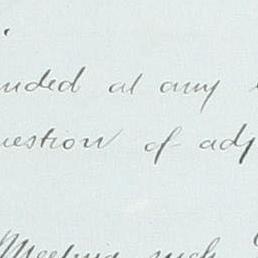 nded at any
uestion of adj
Meeting such